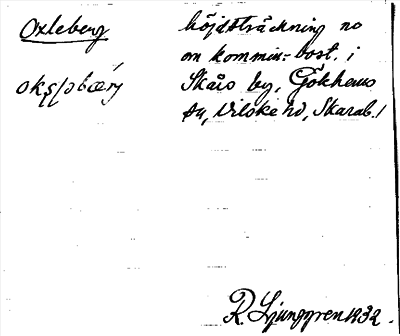 Oxleberg
höjdsträckning no
om kommin:bost. i
Skårs by, Gökhems
sn, Vilske hd, Skarab. l
R. Ljunggren 1932.